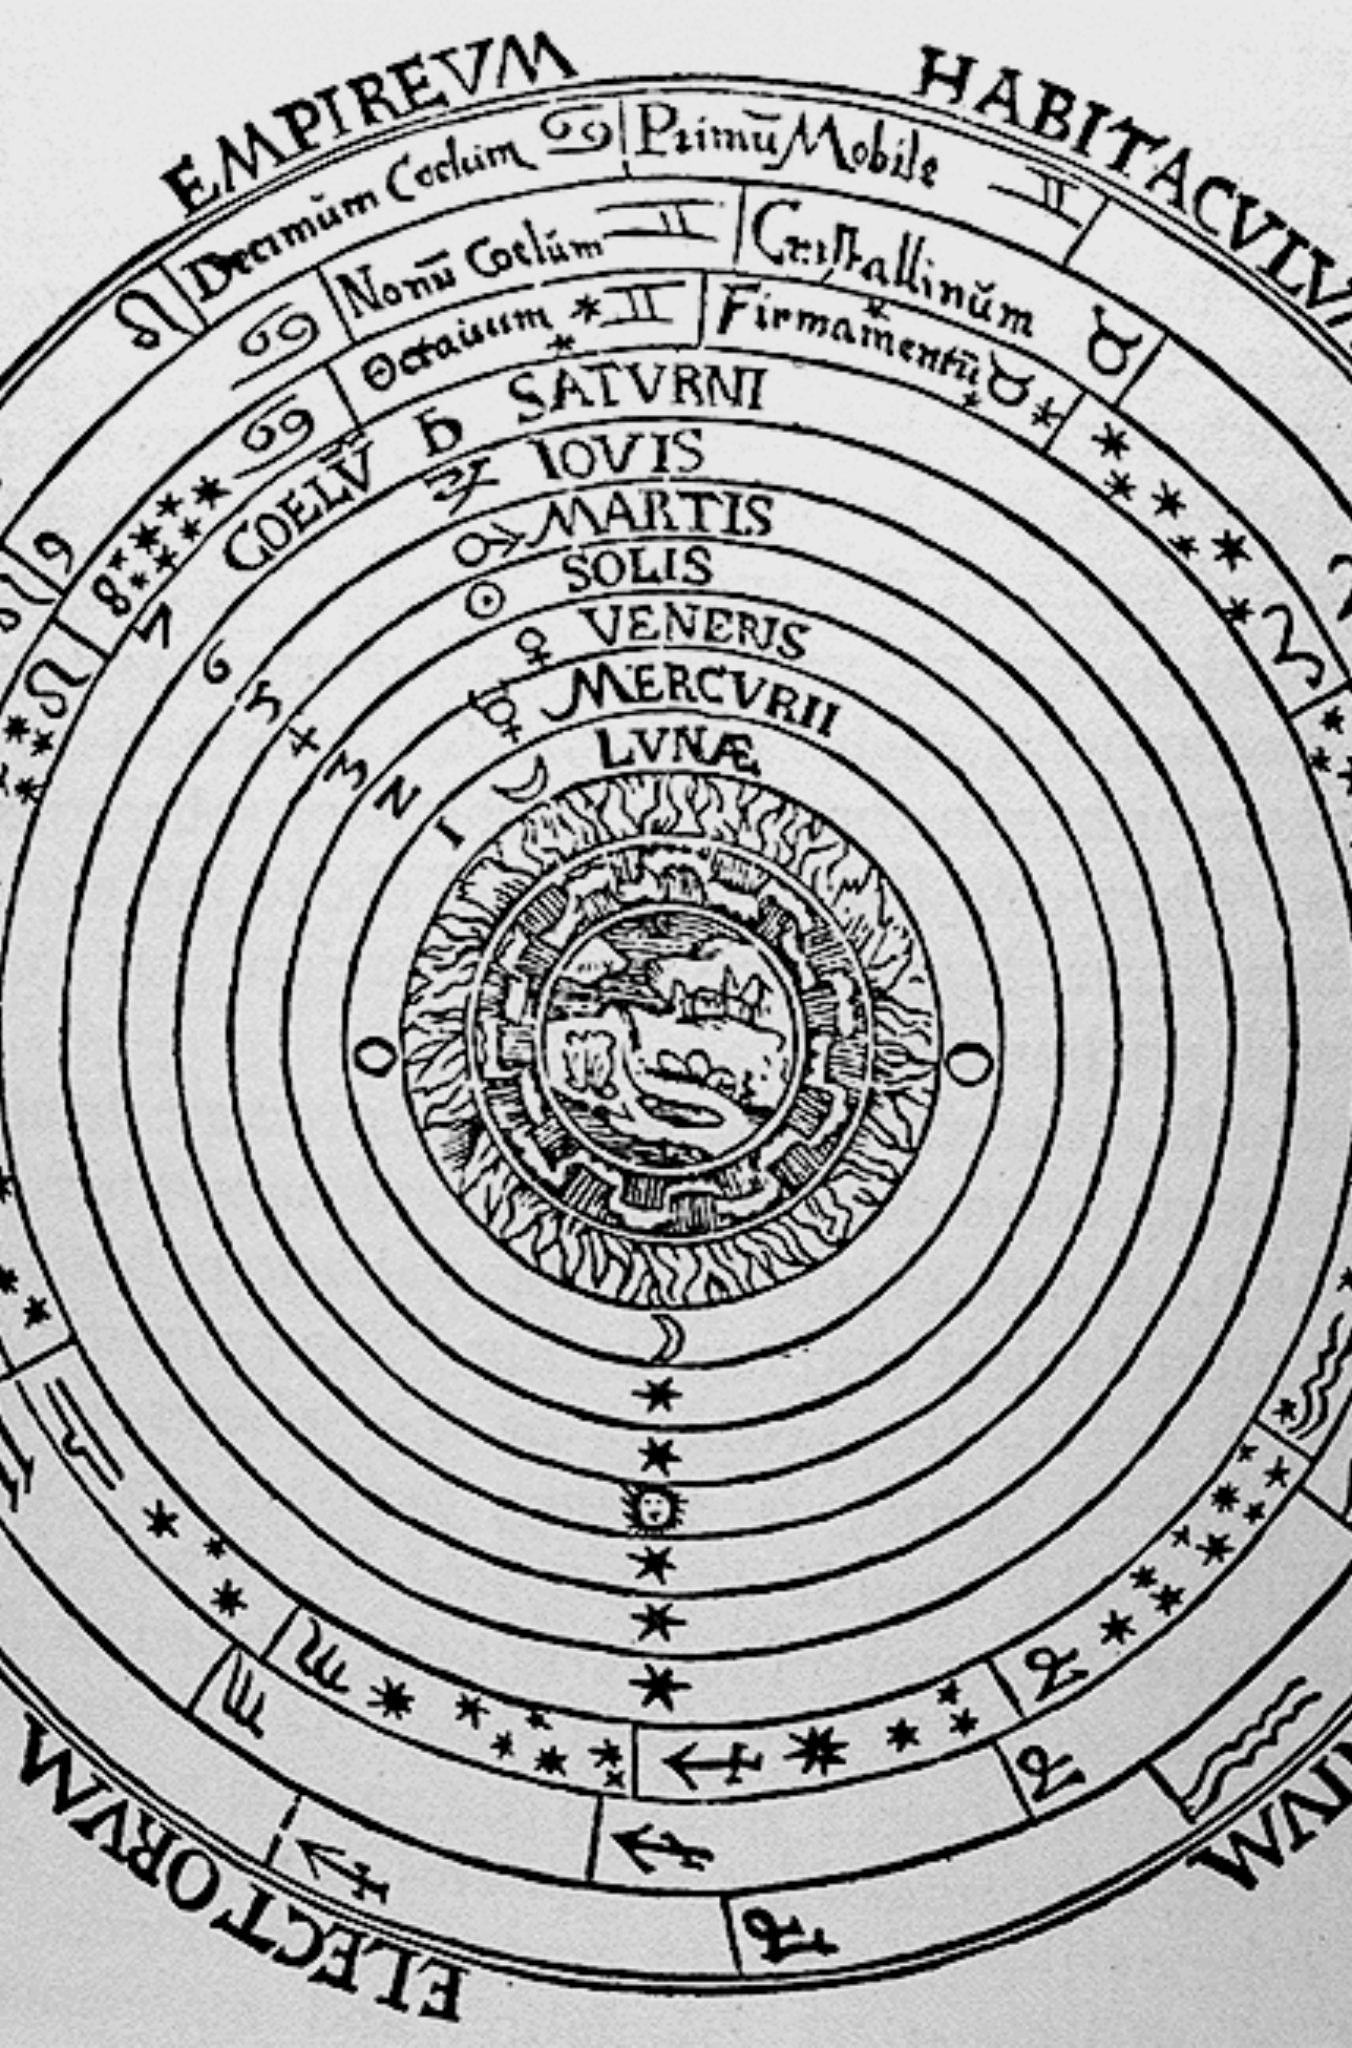 EMPIREVM HABITACVLV
Decimūm Coelum ♋ Primū Mobile ♊
♌
Nonū Coelūm ♊ Cristallinūm ♉
♋
Octauum ♊ Firmamentū ♉
♋
♈
♌
9
8
COELV̄ ♄ SATVRNI
7
♃ IOVIS
6
♂ MARTIS
5
☉ SOLIS
4
♀ VENERIS
3
☿ MERCVRII
2
☽ LVNÆ
1
O O
♎
♏
♏
♐
♐
♐
♑
♑
♑
♒
♒
ELECTORVM